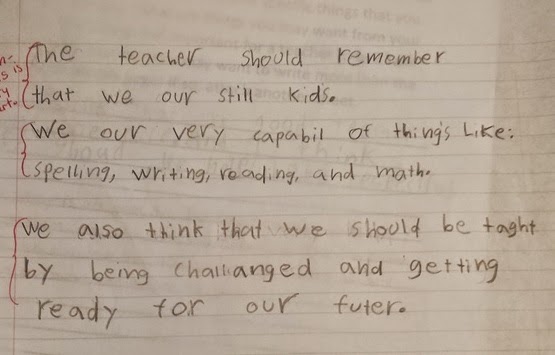 The teacher should remember
that we our still kids.
We our very capabil of things Like:
spelling, writing, reading, and math.
We also think that we should be taght
by being challanged and getting
ready for our futer.